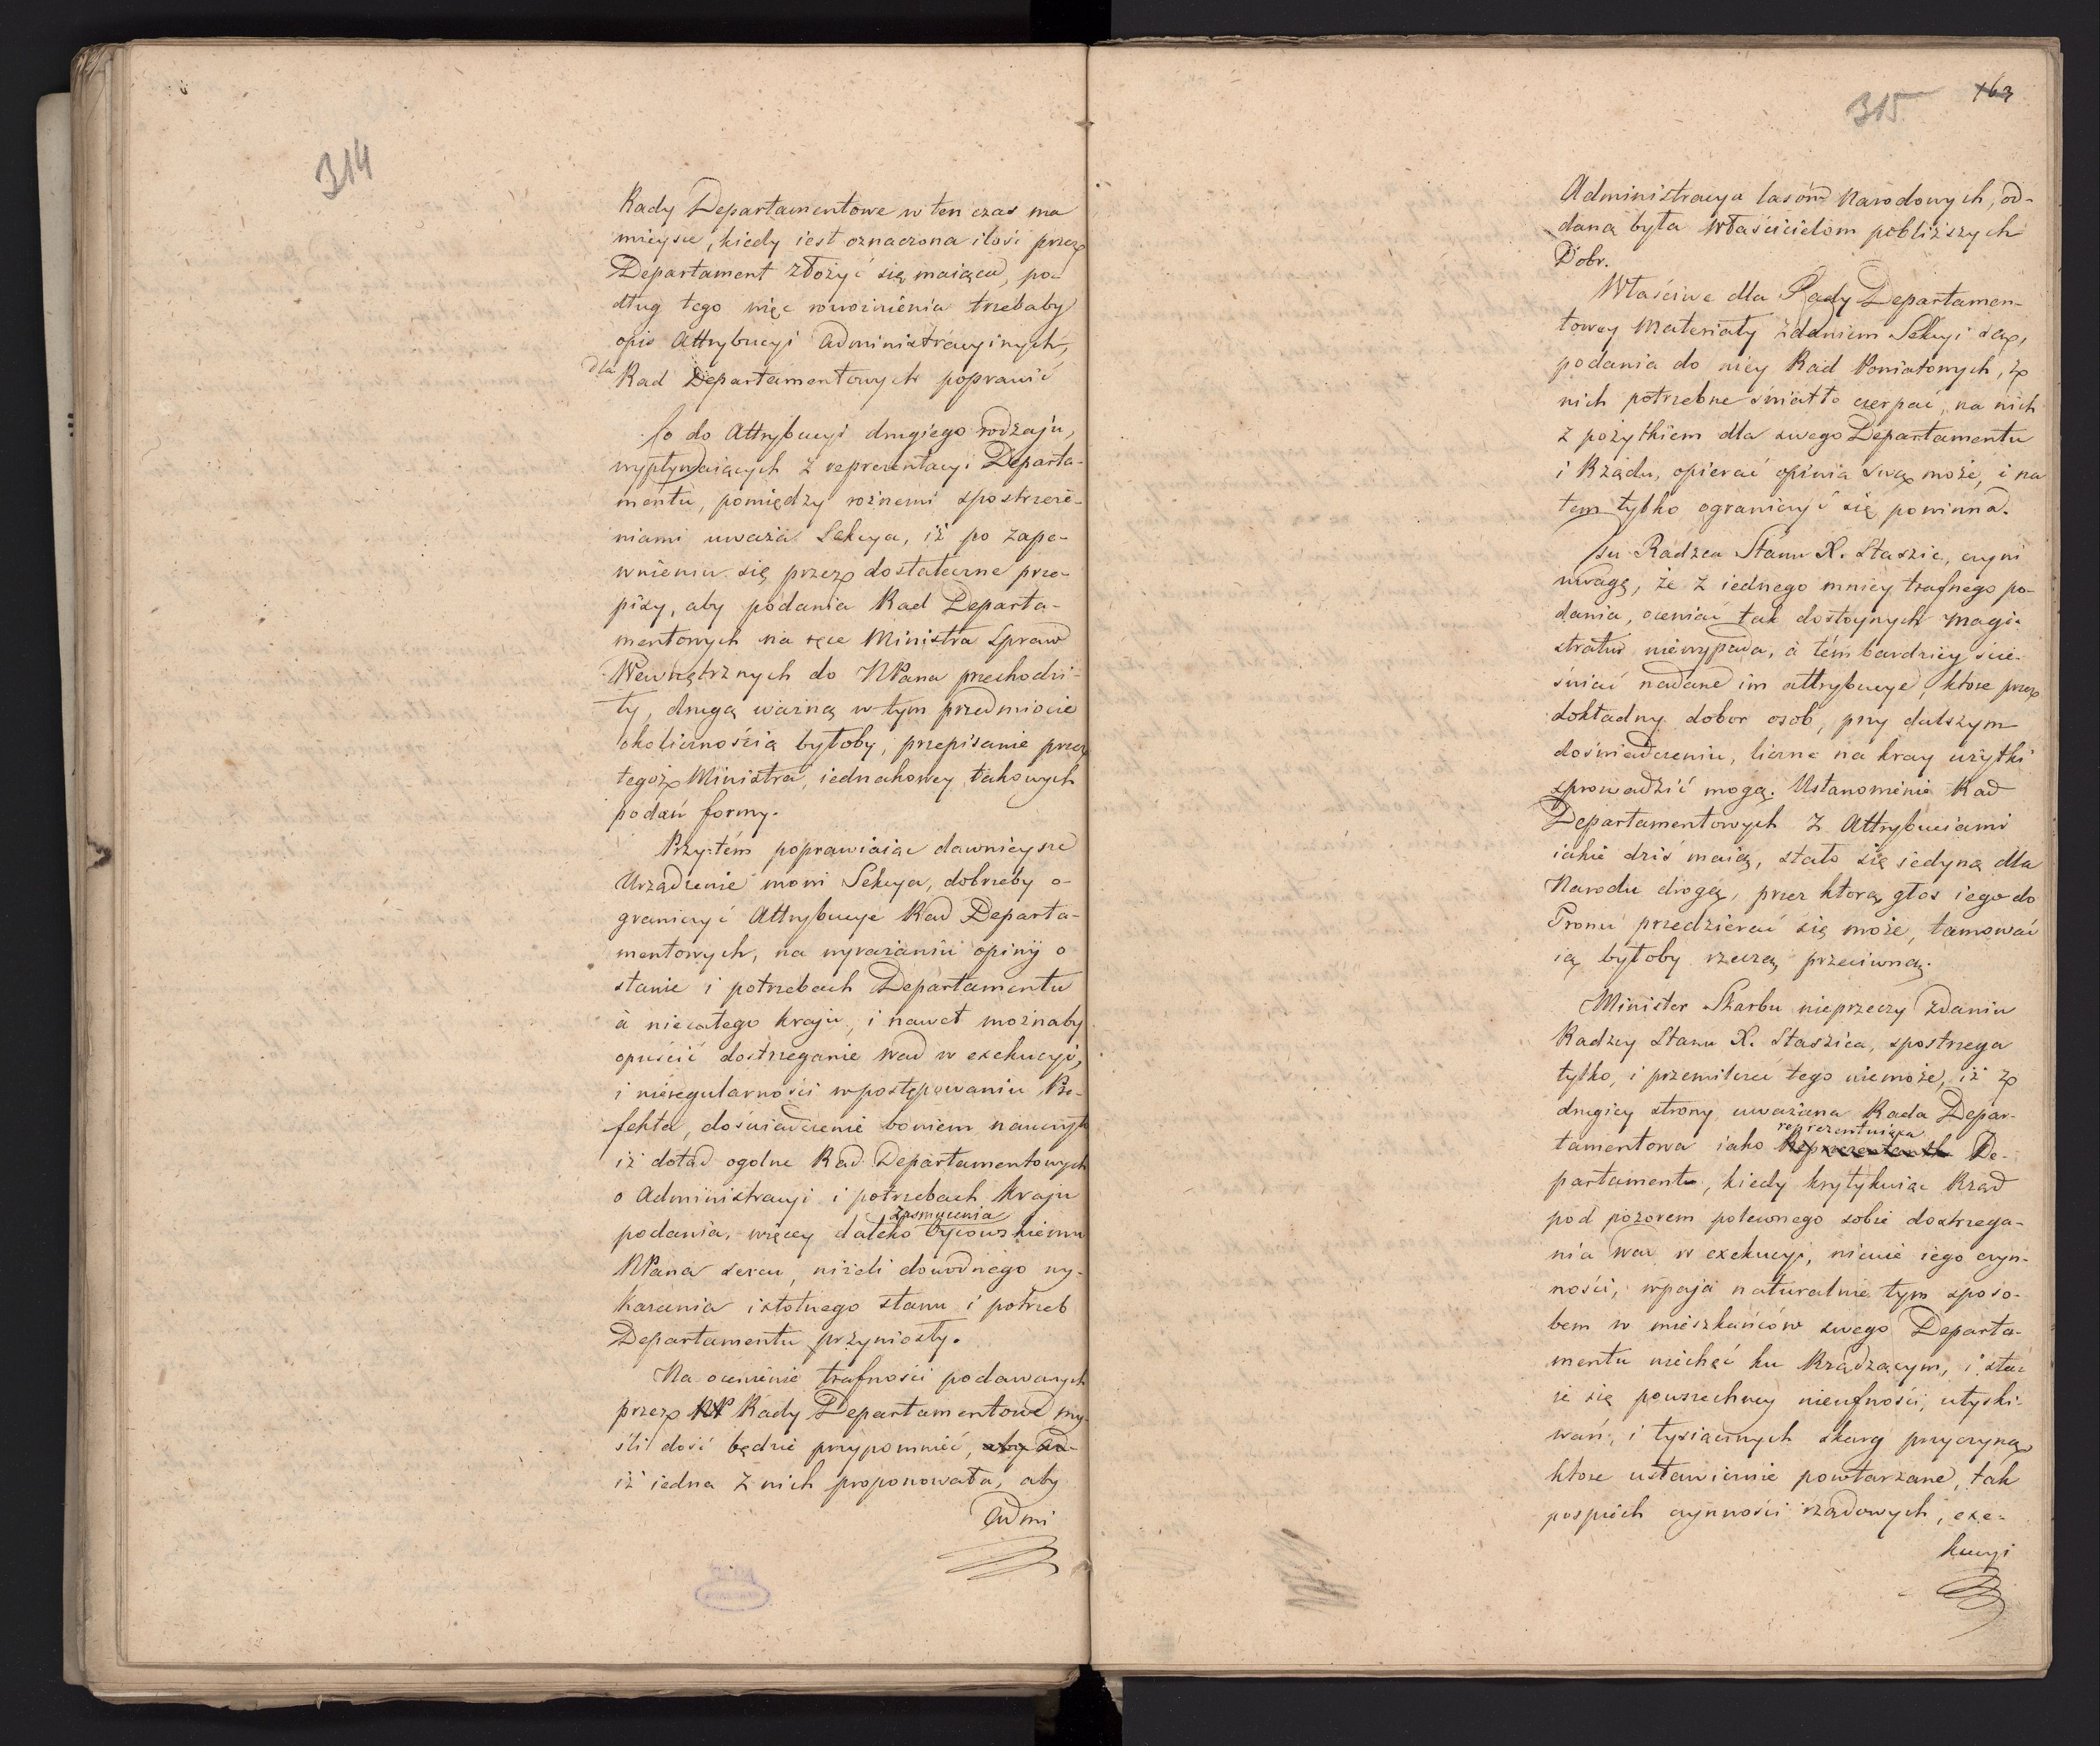 314
Rady Departamentowe w ten czas ma
mieysce, kiedy iest oznaczona ilość przez
Departament złożyć się maiąca, po-
dług tego więc rozroznienia trzebaby
opis Attrybucyi Administracyinych,
dla Rad Departamentowych poprawić
Co do Attrybucyi drugiego rodzaju,
wypływaiących z reprezentacyi Departa-
mentu, pomiędzy rożnemi spostrzeże-
niami uważa Sekcya, iż po zape-
wnieniu się przez dostateczne prze-
pisy, aby podania Rad Departa-
mentowych na ręce Ministra Spraw
Wewnętrznych do NPana przechodzi-
ły, drugą ważną w tym przedmiocie
okolicznością byłoby, przepisanie przez
tegoż Ministra, iednakowey takowych
podań formy.
Przytém poprawiaiąc dawnieysze
Urządzenie mowi Sekcya, dobrzeby o-
graniczyć Attrybucye Rad Departa-
mentowych, na wyrażaniu opinij o
stanie i potrzebach Departamentu
à niecałego kraju, i nawet możnaby
opuścić dostrzeganie wad w exekucyi,
i nieregularności w postępowaniu Pre-
fekta, doświadczenie bowiem nauczyło
iż dotąd ogolne Rad Departamentowych
o Administracyi i potrzebach kraju
zasmucenia
podania, więcey daleko Oycowskiemu
NPana sercu, niżeli dowodnego wy-
kazania istotnego stanu i potrzeb
Departamentu przyniosły.
Na ocenienie trafności podawanych
przez NP Rady Departamentowe my-
śli dość będzie przypomnieć, aby ad-
iż iedna z nich proponowała, aby
Admi
315
163
Administracya lasów Narodowych, od-
daną była Właścicielom pobliższych
Dobr.
Właściwe dla Rady Departamen-
towey materiały zdaniem Sekcyi są,
podania do niey Rad Powiatowych, z
nich potrzebne światło czerpać, na nich
z pożytkiem dla swego Departamentu
i Rządu, opierać opinią swą może, i na
tem tylko ograniczyć się powinna.
Radzca Stanu X. Staszic, czyni
uwagę, że z iednego mniey trafnego po-
dania, oceniać tak dostoynych Magi-
stratur niewypada, à tém bardziey ście-
śniać nadane im attrybucye, które przez
dokładny dobor osob, przy dalszym
doświadczeniu, liczne na kray użytki
sprowadzić mogą. Ustanowienie Rad
Departamentowych z Attrybuciami
iakie dziś maią, stało się iedyną dla
Narodu drogą, przez którą głos iego do
Tronu przedzierać się może, tamować
ią byłoby rzeczą przeciwną.
Minister Skarbu nieprzeczy zdaniu
Radzcy Stanu X. Staszica, spostrzega
tylko, i przemilczeć tego niemoże, iż z
drugiey strony uważana Rada Depar-
reprezentuiąca
tamentowa iako Reprezentantka De-
partamentu, kiedy krytykuiąc Rząd
pod pozorem poleconego sobie dostrzega-
nia wad w exekucyi, nicuie iego czyn-
ności, wpaja naturalnie tym sposo-
bem w mieszkańców swego Departa-
mentu niechęć ku Rządzącym, i sta-
je się powszechney nieufności, utyski-
wań, i tysiącznych skarg przyczyną
które ustawicznie powtarzane, tak
pospiech czynności rządowych, exe-
kucyi